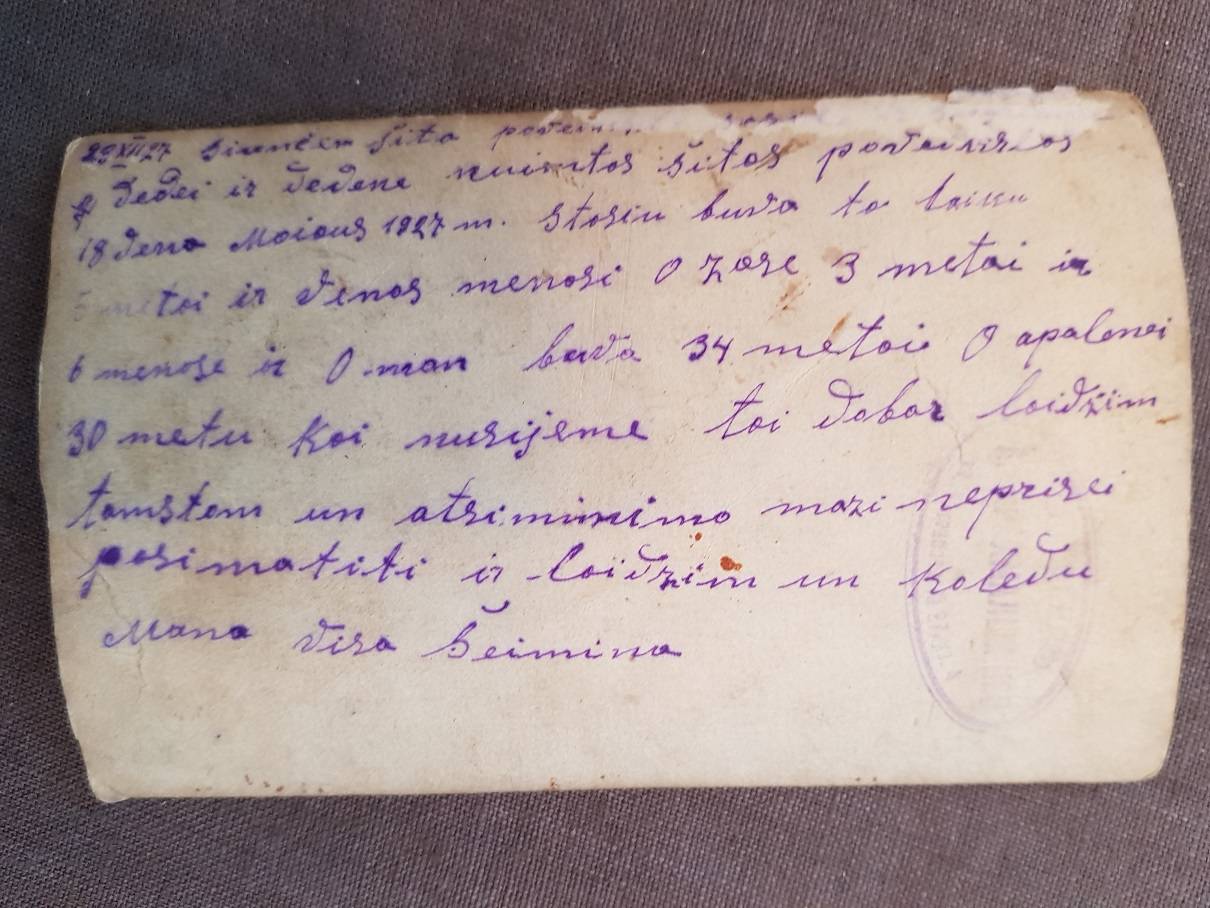 29 XII 27 Siunčem šita
Dedei ir Dedene nuimtos šitos paveixslos
18 dena Maiaus 1927 m. Stasiu buva to laiku
5 metai ir venas menasi O Zose 3 metai ir
6 menose ir O man buva 34 metai O apalonei
30 metu kai nusijeme tai dabar laidžim
tamstem un atsiminimo mazi neprisei
pasimatiti ir laidzim un Koledu
Mana visa Šeimina